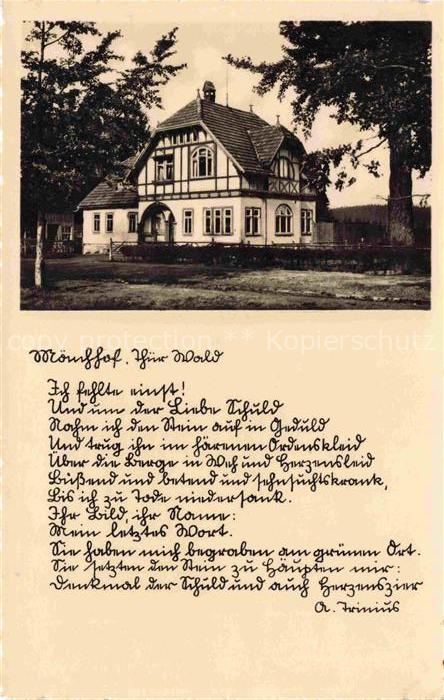 copy protection ** Kopierschutz
Mönchhof, Thür Wald
Ich fehlte einst!
Und um der Liebe Schuld
Nahm ich den Stein auf in Geduld
Und trug ihn im härenen Ordenskleid
Über die Berge in Weh und Herzensleid
Büßend und betend und sehnsuchtskrank,
Bis ich zu Tode niedersank.
Ihr Bild, ihr Name:
Mein letztes Wort.
Sie haben mich begraben am grünen Ort.
Sie setzten den Stein zu Häupten mir:
Denkmal der Schuld und auch Herzenszier
A. Trinius